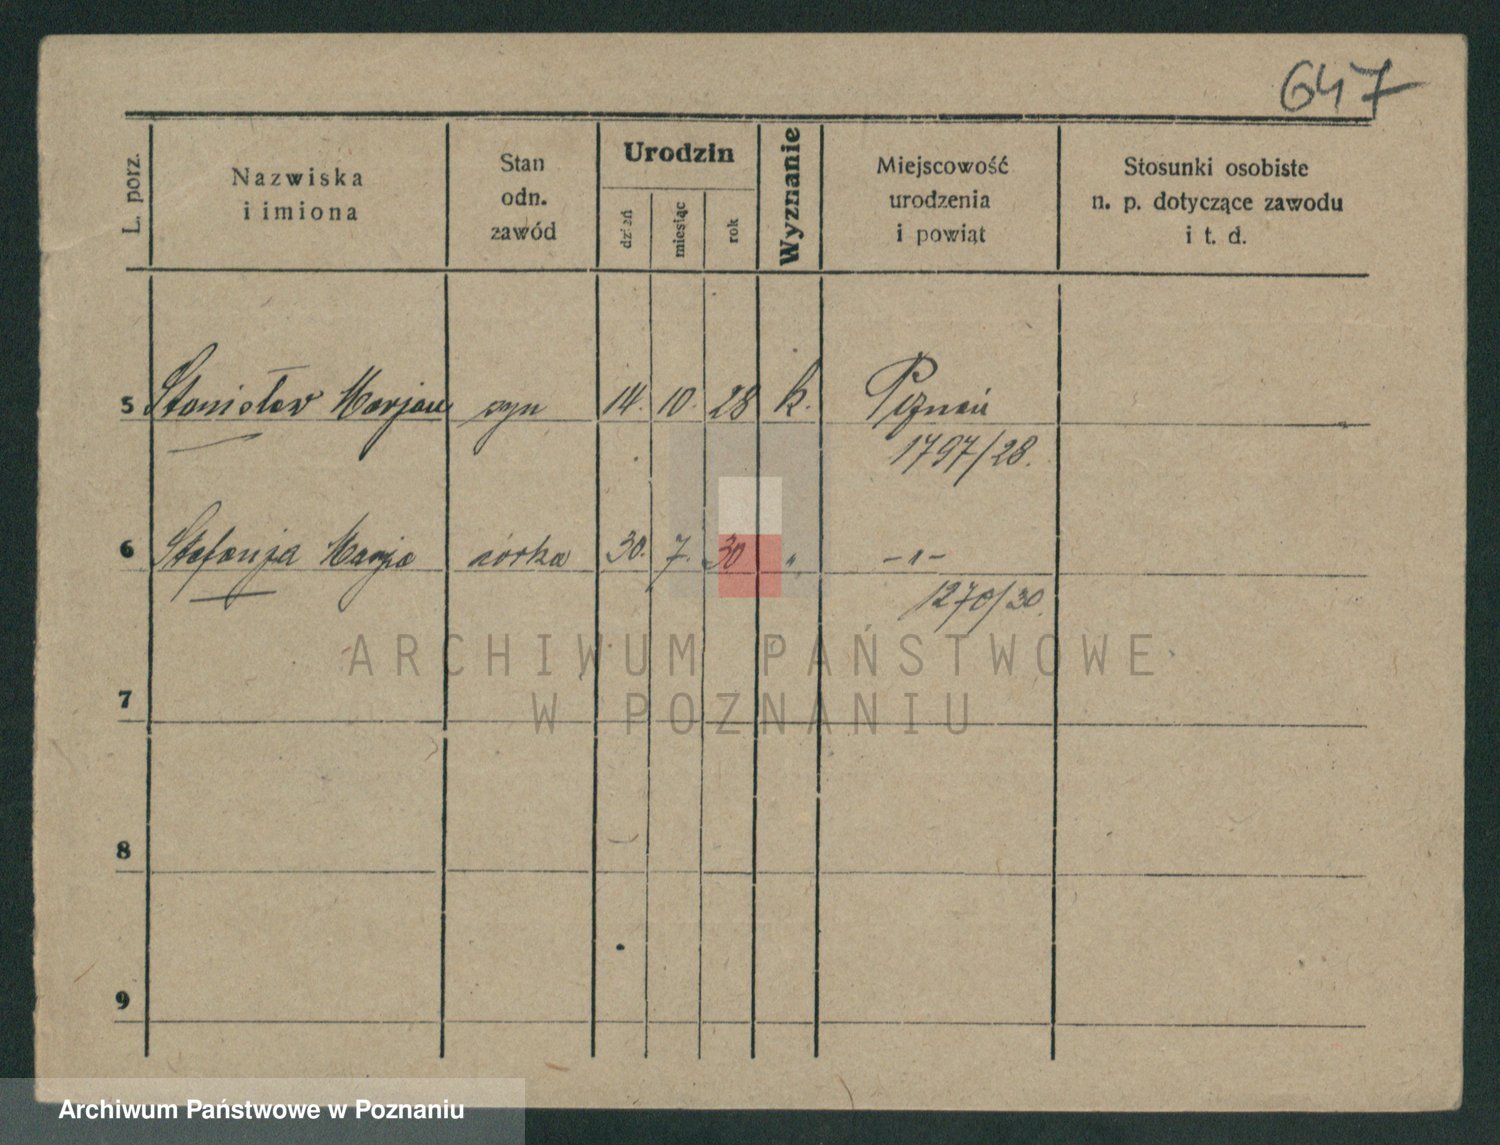 647
L. porz.
Nazwiska
i imiona
Stan
odn.
zawód
Urodzin
dzień
miesiąc
rok
Wyznanie
Miejscowość
urodzenia
i powiat
Stosunki osobiste
n. p. dotyczące zawodu
i t. d.
5 Stanisław Marjan syn 14. 10. 28 k. Poznań
1797/28.
6 Stefanja Marja córka 30. 7. 30 " -"-
1270/30.
ARCHIWUM PAŃSTWOWE
W POZNANIU
7
8
9
Archiwum Państwowe w Poznaniu